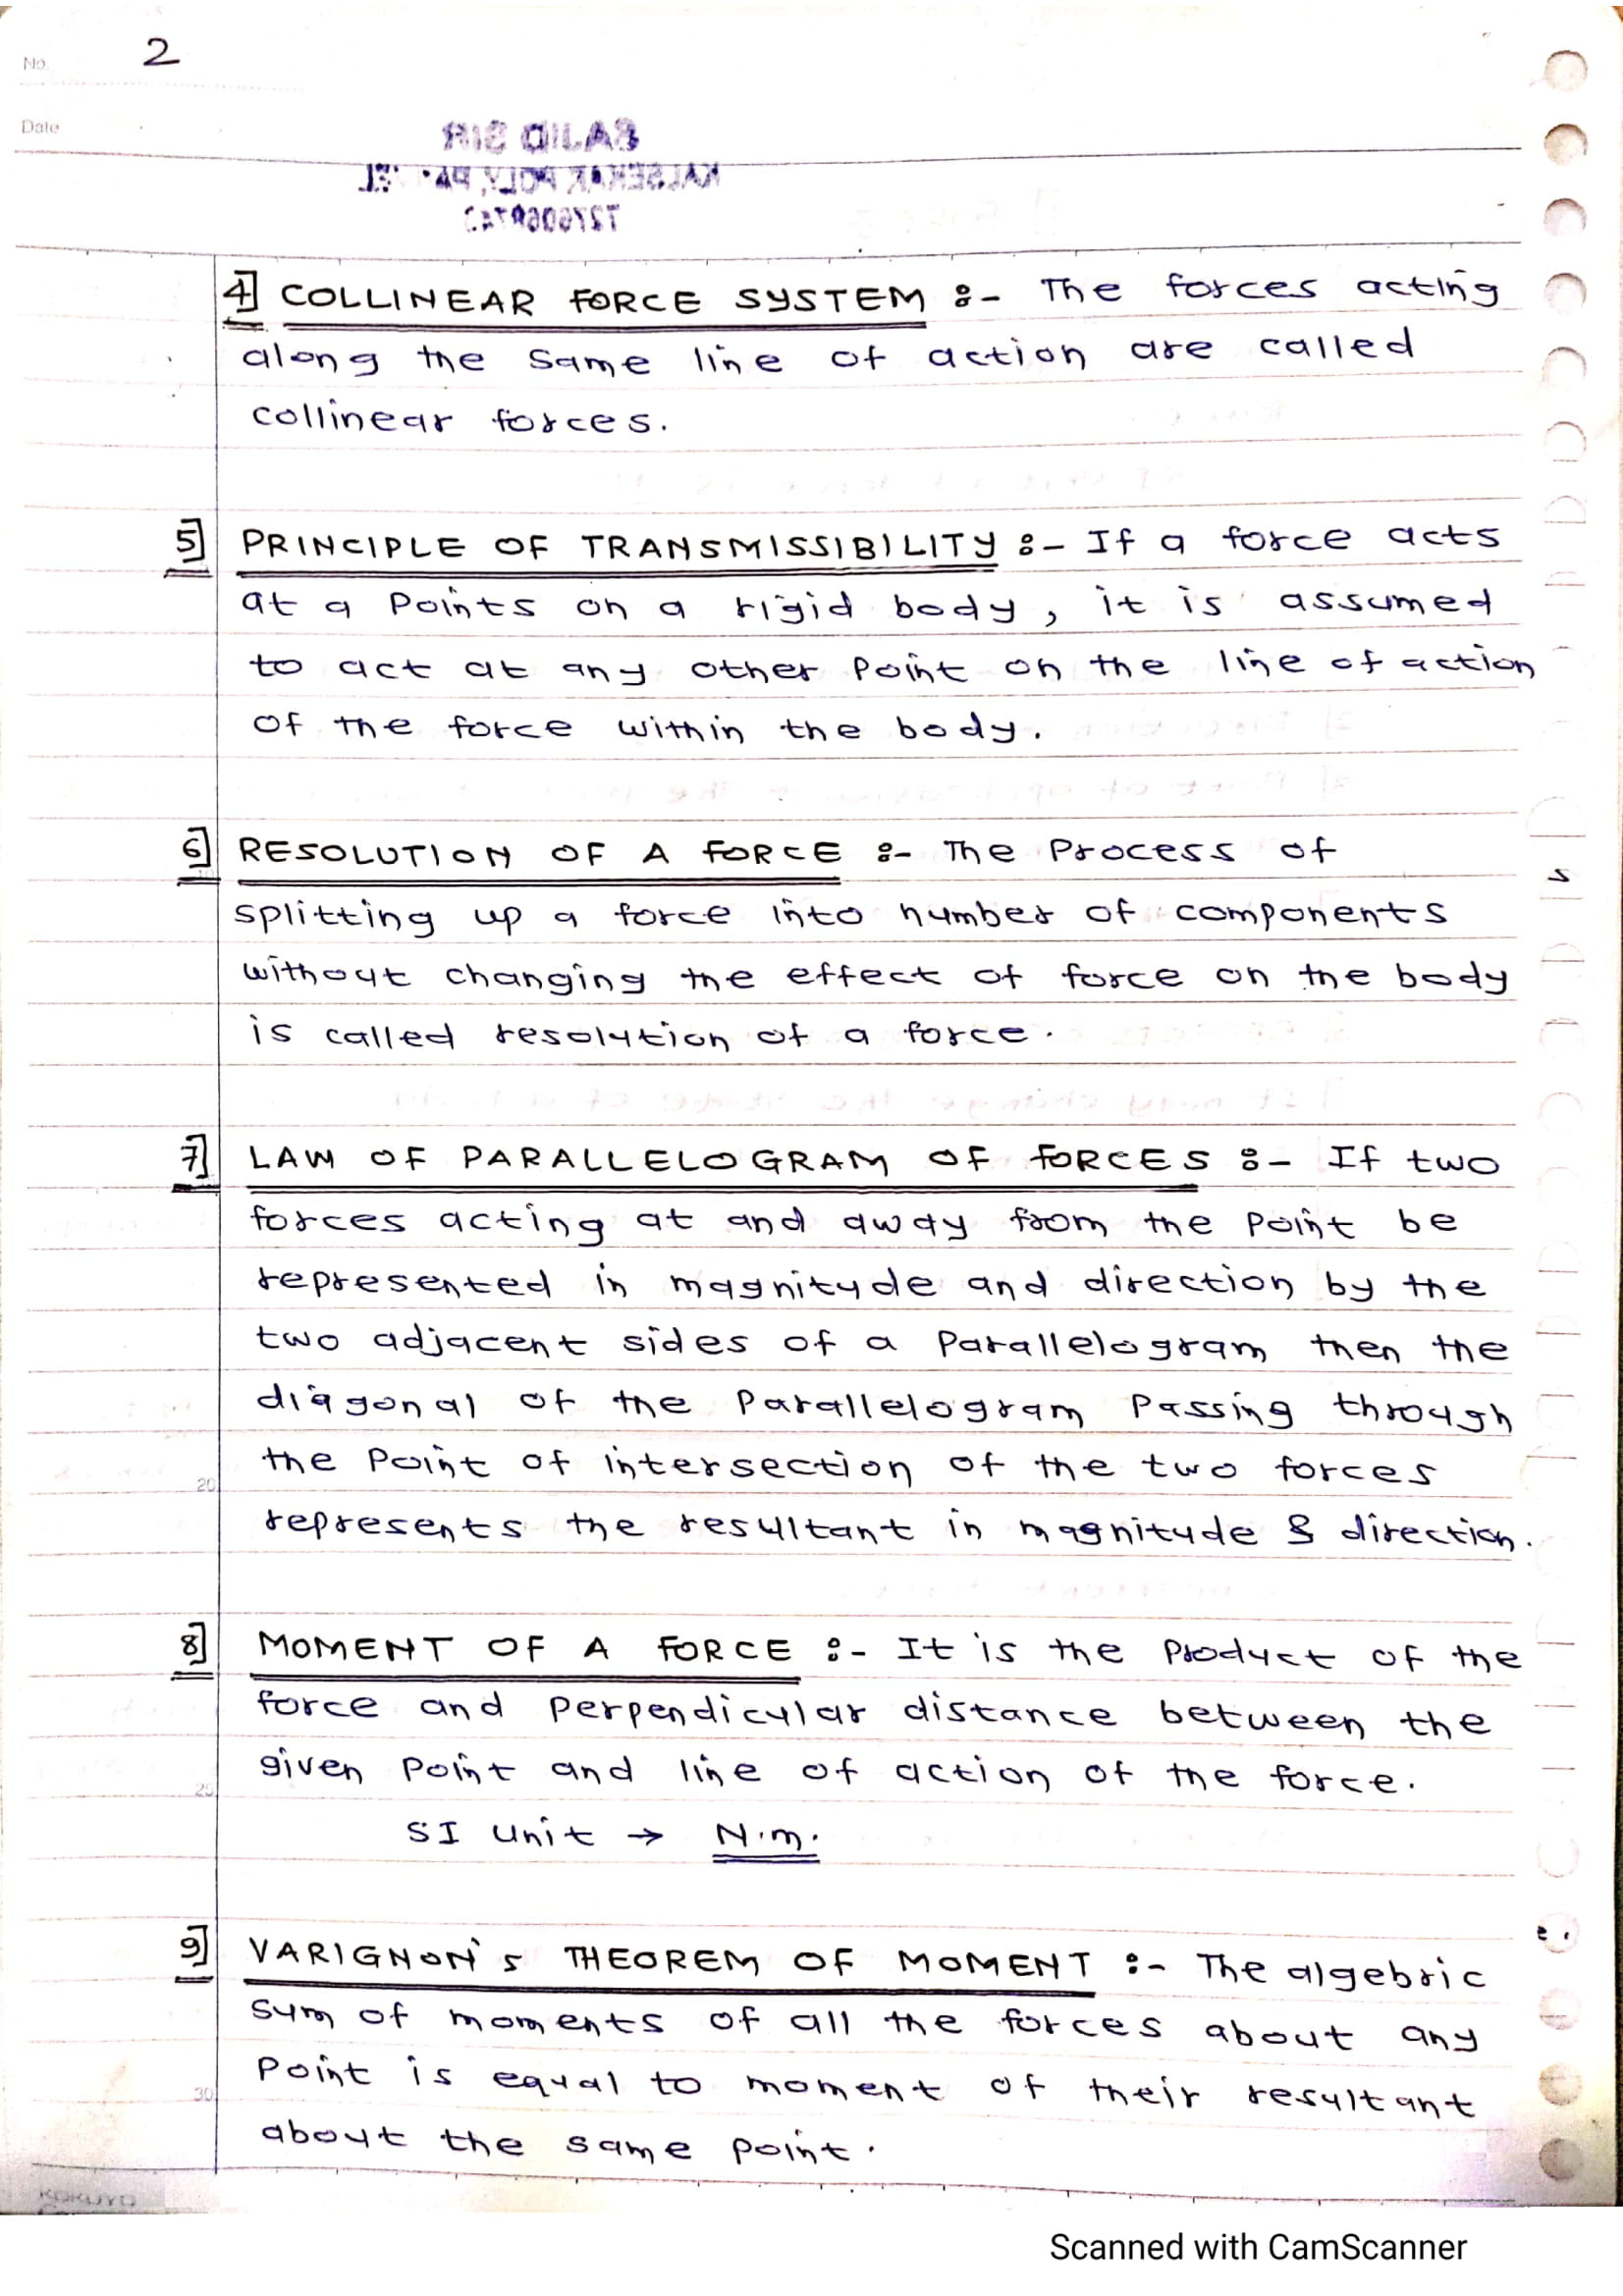 No. 2
Date
SAJID SIR
KALSEKAR POLY, PA
4] COLLINEAR FORCE SYSTEM :- The forces acting
along the same line of action are called
collinear forces.
5] PRINCIPLE OF TRANSMISSIBILITY :- If a force acts
at a points on a rigid body, it is assumed
to act at any other point on the line of action
of the force within the body.
6] RESOLUTION OF A FORCE :- The Process of
splitting up a force into number of components
without changing the effect of force on the body
is called resolution of a force.
7] LAW OF PARALLELOGRAM OF FORCES :- If two
forces acting at and away from the point be
represented in magnitude and direction by the
two adjacent sides of a parallelogram then the
diagonal of the parallelogram passing through
20
the point of intersection of the two forces
represents the resultant in magnitude & direction.
8] MOMENT OF A FORCE :- It is the Product of the
force and perpendicular distance between the
25
given point and line of action of the force.
SI unit → N.m.
9] VARIGNON's THEOREM OF MOMENT :- The algebric
sum of moments of all the forces about any
30
point is equal to moment of their resultant
about the same point.
KOKUYO
Scanned with CamScanner